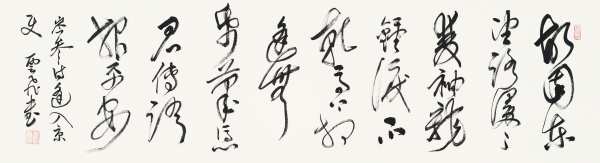 故園東
望路漫〻
雙袖龍
鍾淚不
乾馬上相
逢無
紙筆憑
君傳語
報平安
岑參詩逢入京
使 雲飛書